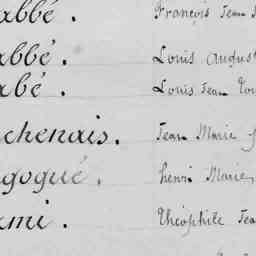 abbé. François Jean
abbé. Louis August
abé. Louis Jean
chenais. Jean Marie
gogué. henri Marie
ami. théophile Jea